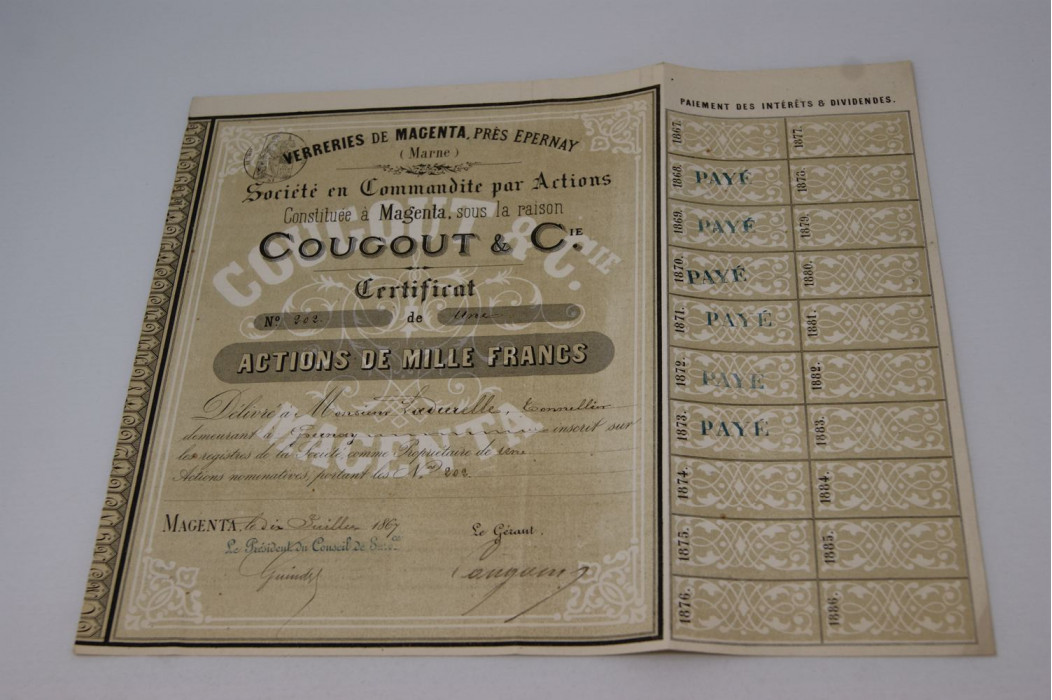 VERRERIES DE MAGENTA, PRÈS EPERNAY
(Marne)
Société en Commandite par Actions
Constituée à Magenta, sous la raison
COUGOUT & CIE.
COUGOUT & CIE
Certificat
No 202. de Une
ACTIONS DE MILLE FRANCS
MAGENTA
Délivré à Monsieur Tonnellier
demeurant à Epernay inscrit sur
les registres de la Société comme Propriétaire de une
Actions nominatives, portant les Nos 202.
MAGENTA, le dix Juillet 1867
Le Président du Conseil de
Le Gérant,
PAIEMENT DES INTÉRÊTS & DIVIDENDES.
1867. 1877.
1868. PAYÉ 1878.
1869. PAYÉ 1879.
1870. PAYÉ 1880.
1871. PAYÉ 1881.
1872. PAYÉ 1882.
1873. PAYÉ 1883.
1874. 1884.
1875. 1885.
1876. 1886.